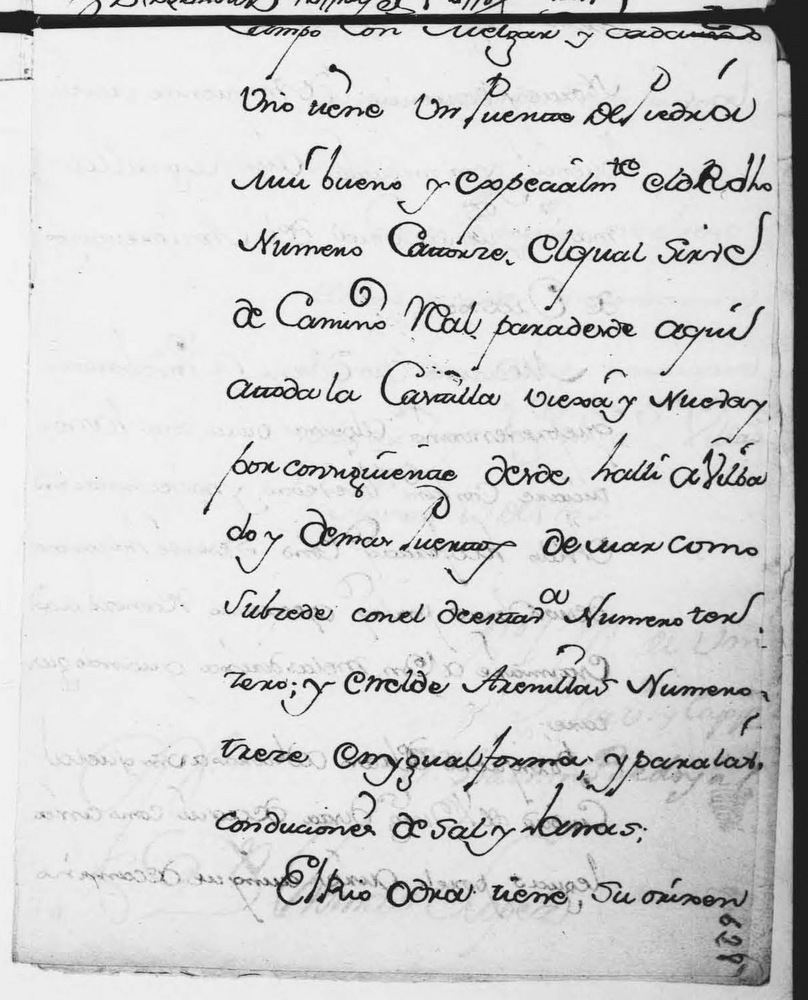 Campo con Melgar y cada
Uno tiene Un Puente de Piedra
Mui bueno, y expecialmte el de dho
Numero Cattorze, el qual Sirve
de Camino Real para desde aqui
a ttoda la Castilla viexa, y Nueva, y
por consiguiente desde halli a Vilba
do y demas Puertos de mar como
Subzede con el de esta Va Numero ter
zero; y en el de Arenillas Numero
treze en ygual forma; y para las
conduciones de Sal, y lanas;
El Rio Odra tiene, Su orixen
629